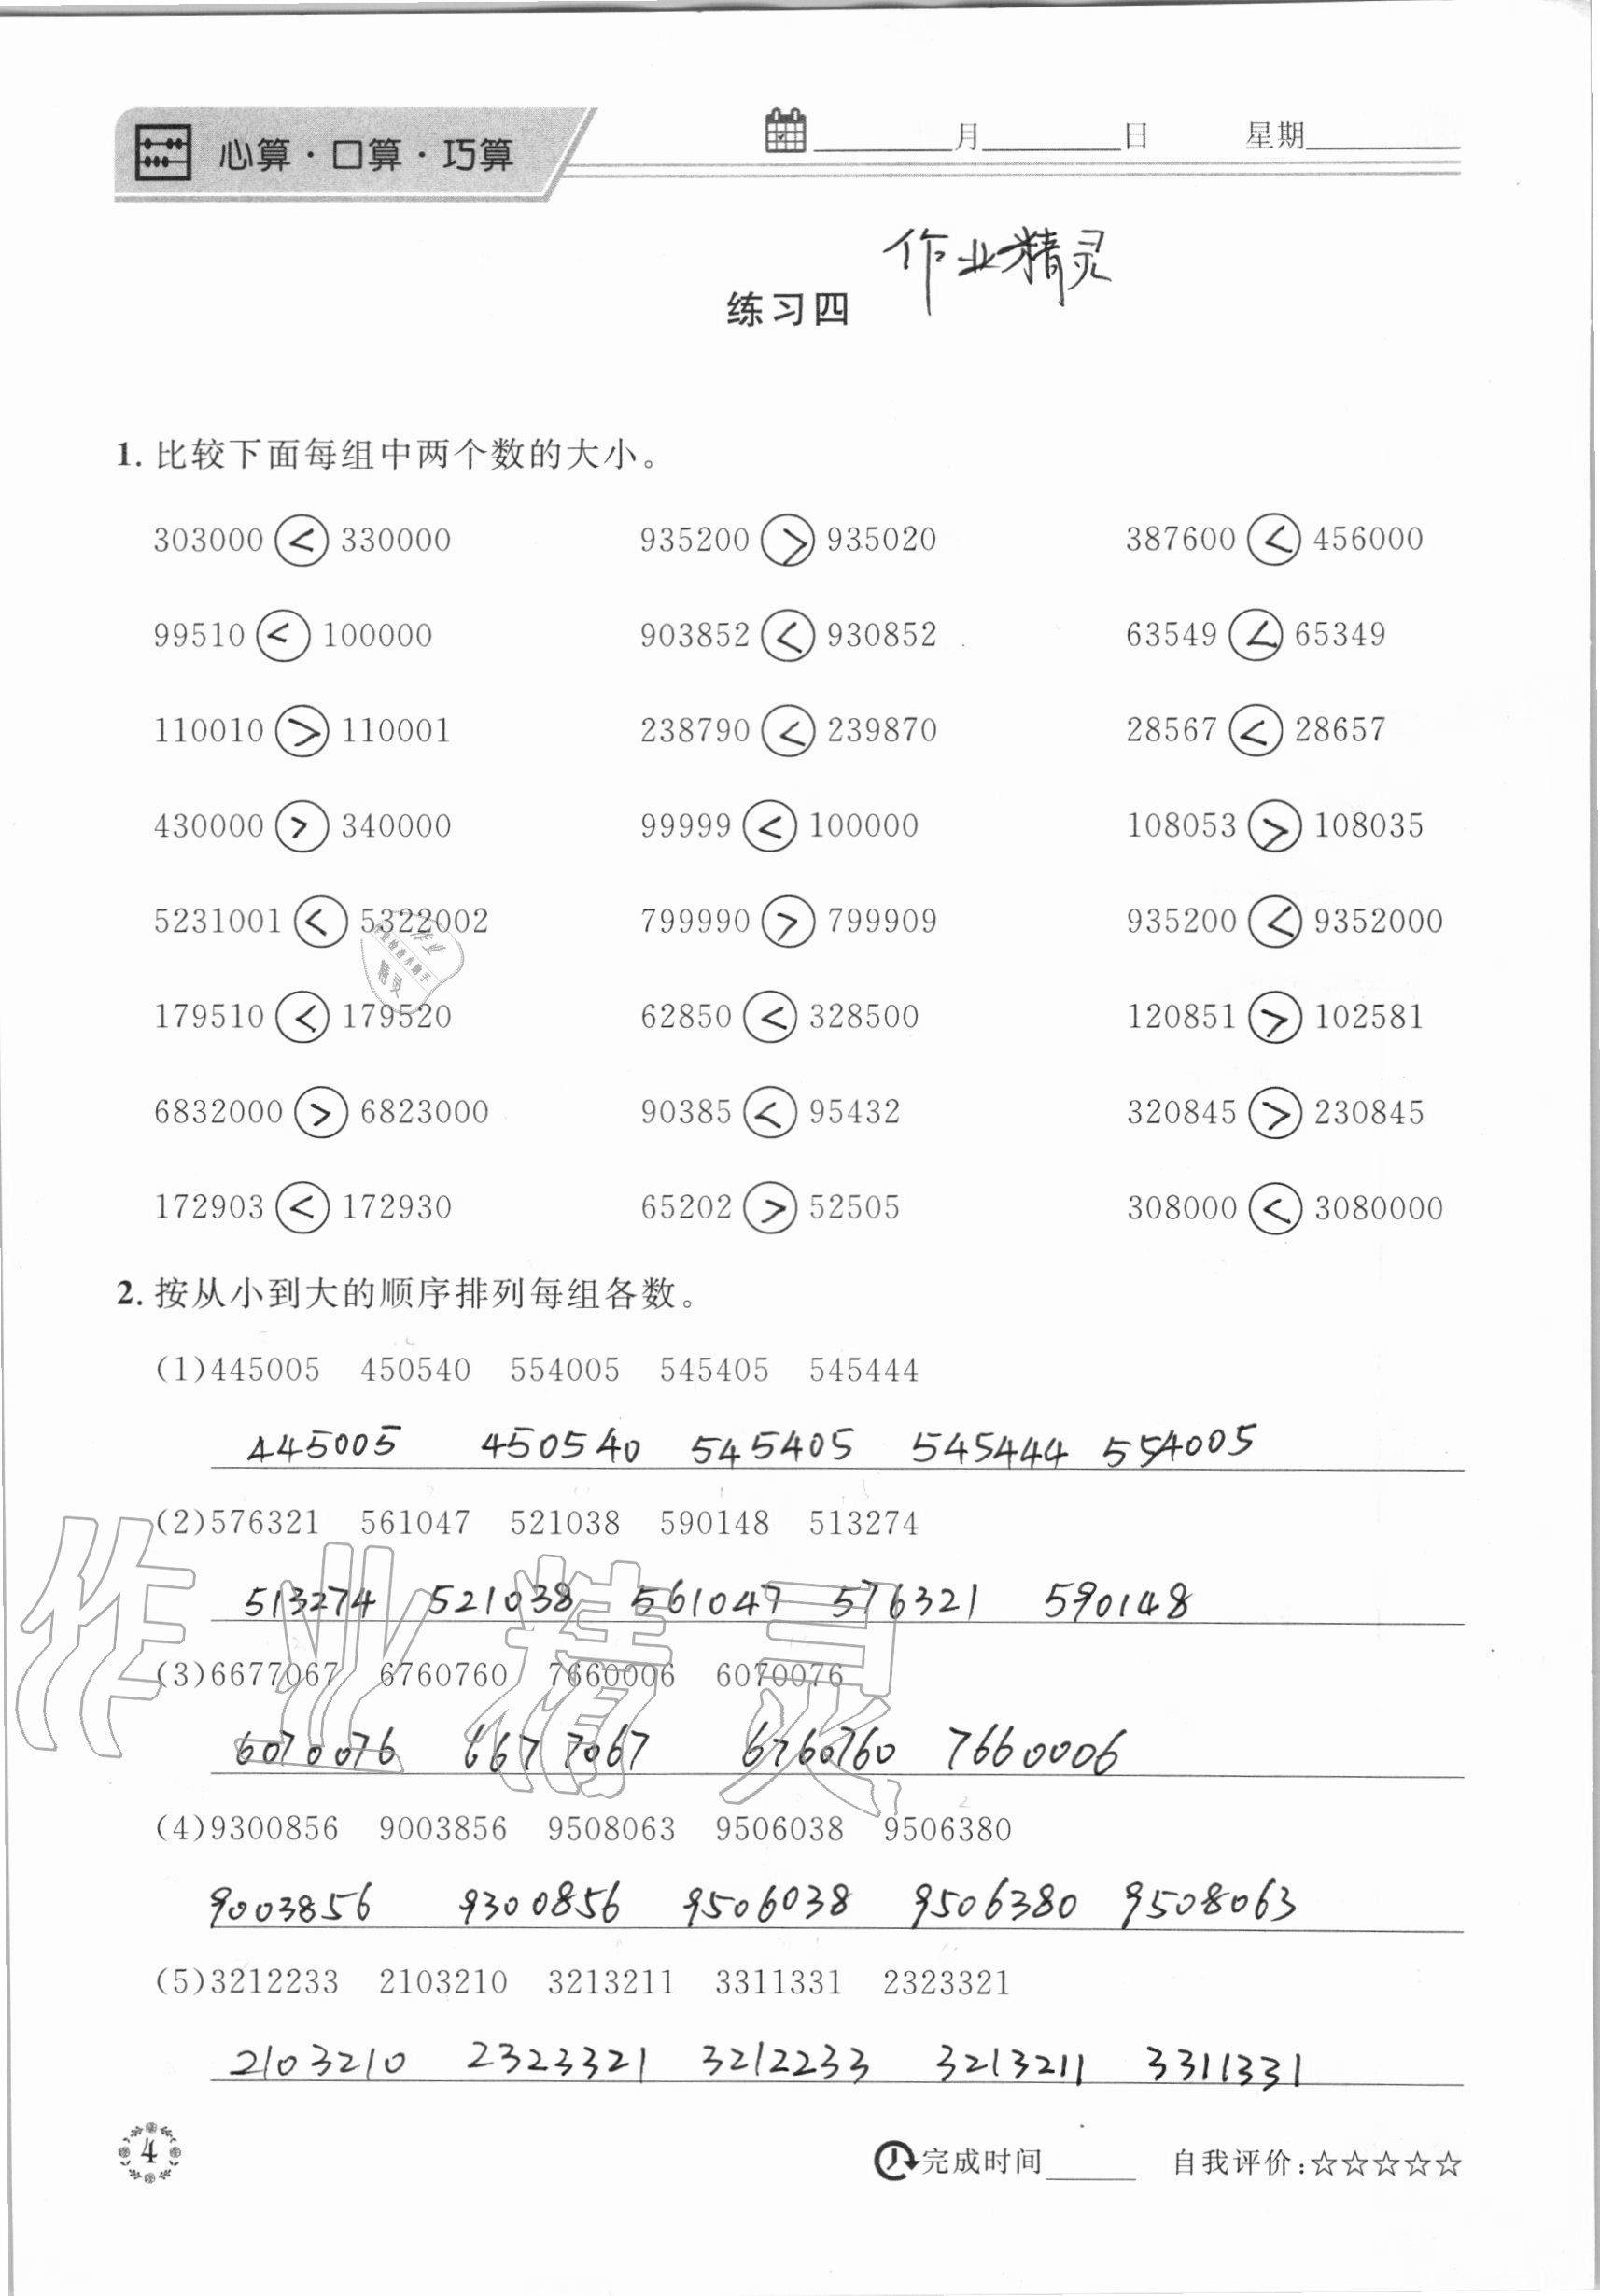 心算·口算·巧算 ____月____日 星期____
作业精灵
练习四
1. 比较下面每组中两个数的大小。
303000 < 330000 935200 > 935020 387600 < 456000
99510 < 100000 903852 < 930852 63549 < 65349
110010 > 110001 238790 < 239870 28567 < 28657
430000 > 340000 99999 < 100000 108053 > 108035
5231001 < 5322002 799990 > 799909 935200 < 9352000
作业
作业检查小助手
精灵
179510 < 179520 62850 < 328500 120851 > 102581
6832000 > 6823000 90385 < 95432 320845 > 230845
172903 < 172930 65202 > 52505 308000 < 3080000
2. 按从小到大的顺序排列每组各数。
(1)445005 450540 554005 545405 545444
445005 450540 545405 545444 554005
(2)576321 561047 521038 590148 513274
513274 521038 561047 576321 590148
作业精灵
(3)6677067 6760760 7660006 6070076
6070076 6677067 6760760 7660006
(4)9300856 9003856 9508063 9506038 9506380
9003856 9300856 9506038 9506380 9508063
(5)3212233 2103210 3213211 3311331 2323321
2103210 2323321 3212233 3213211 3311331
4 完成时间____ 自我评价:☆☆☆☆☆